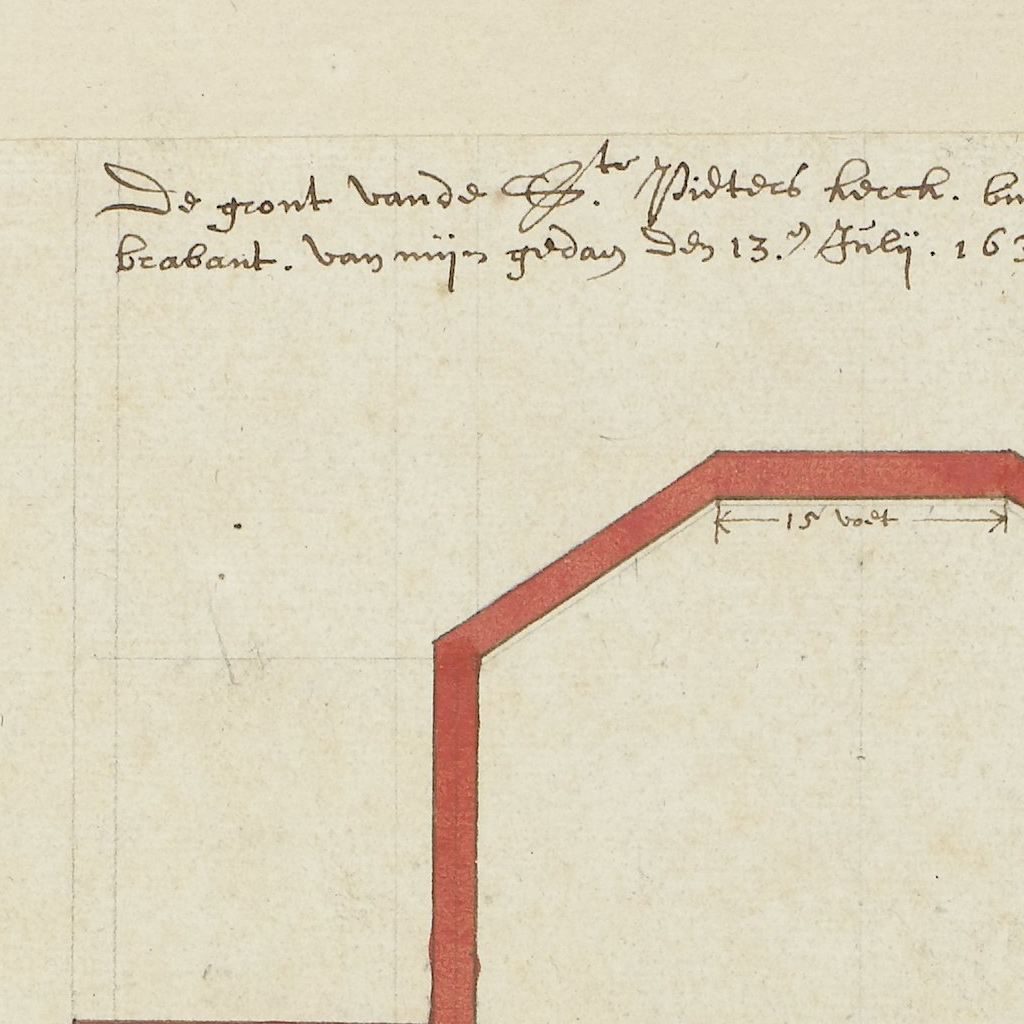 De gront vande Ste. Pieters kerck.
brabant. van mijn gedaen den 13.n Julij. 163
15 voet